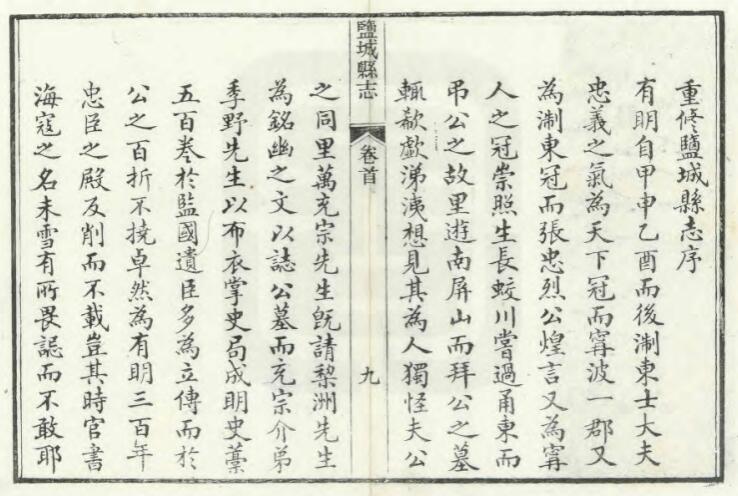 重修鹽城縣志序
有明自甲申乙酉而後淛東士大夫
忠義之氣為天下冠而甯波一郡又
為淛東冠而張忠烈公煌言又為甯
人之冠崇照生長蛟川嘗過甬東而
弔公之故里遊南屏山而拜公之墓
輒欷歔涕洟想見其為人獨怪夫公
鹽城縣志
卷首
九
之同里萬充宗先生既請梨洲先生
為銘幽之文以誌公墓而充宗介弟
季野先生以布衣掌史局成明史藁
五百卷於監國遺臣多為立傳而於
公之百折不撓卓然為有明三百年
忠臣之殿反削而不載豈其時官書
海寇之名未雪有所畏誋而不敢耶